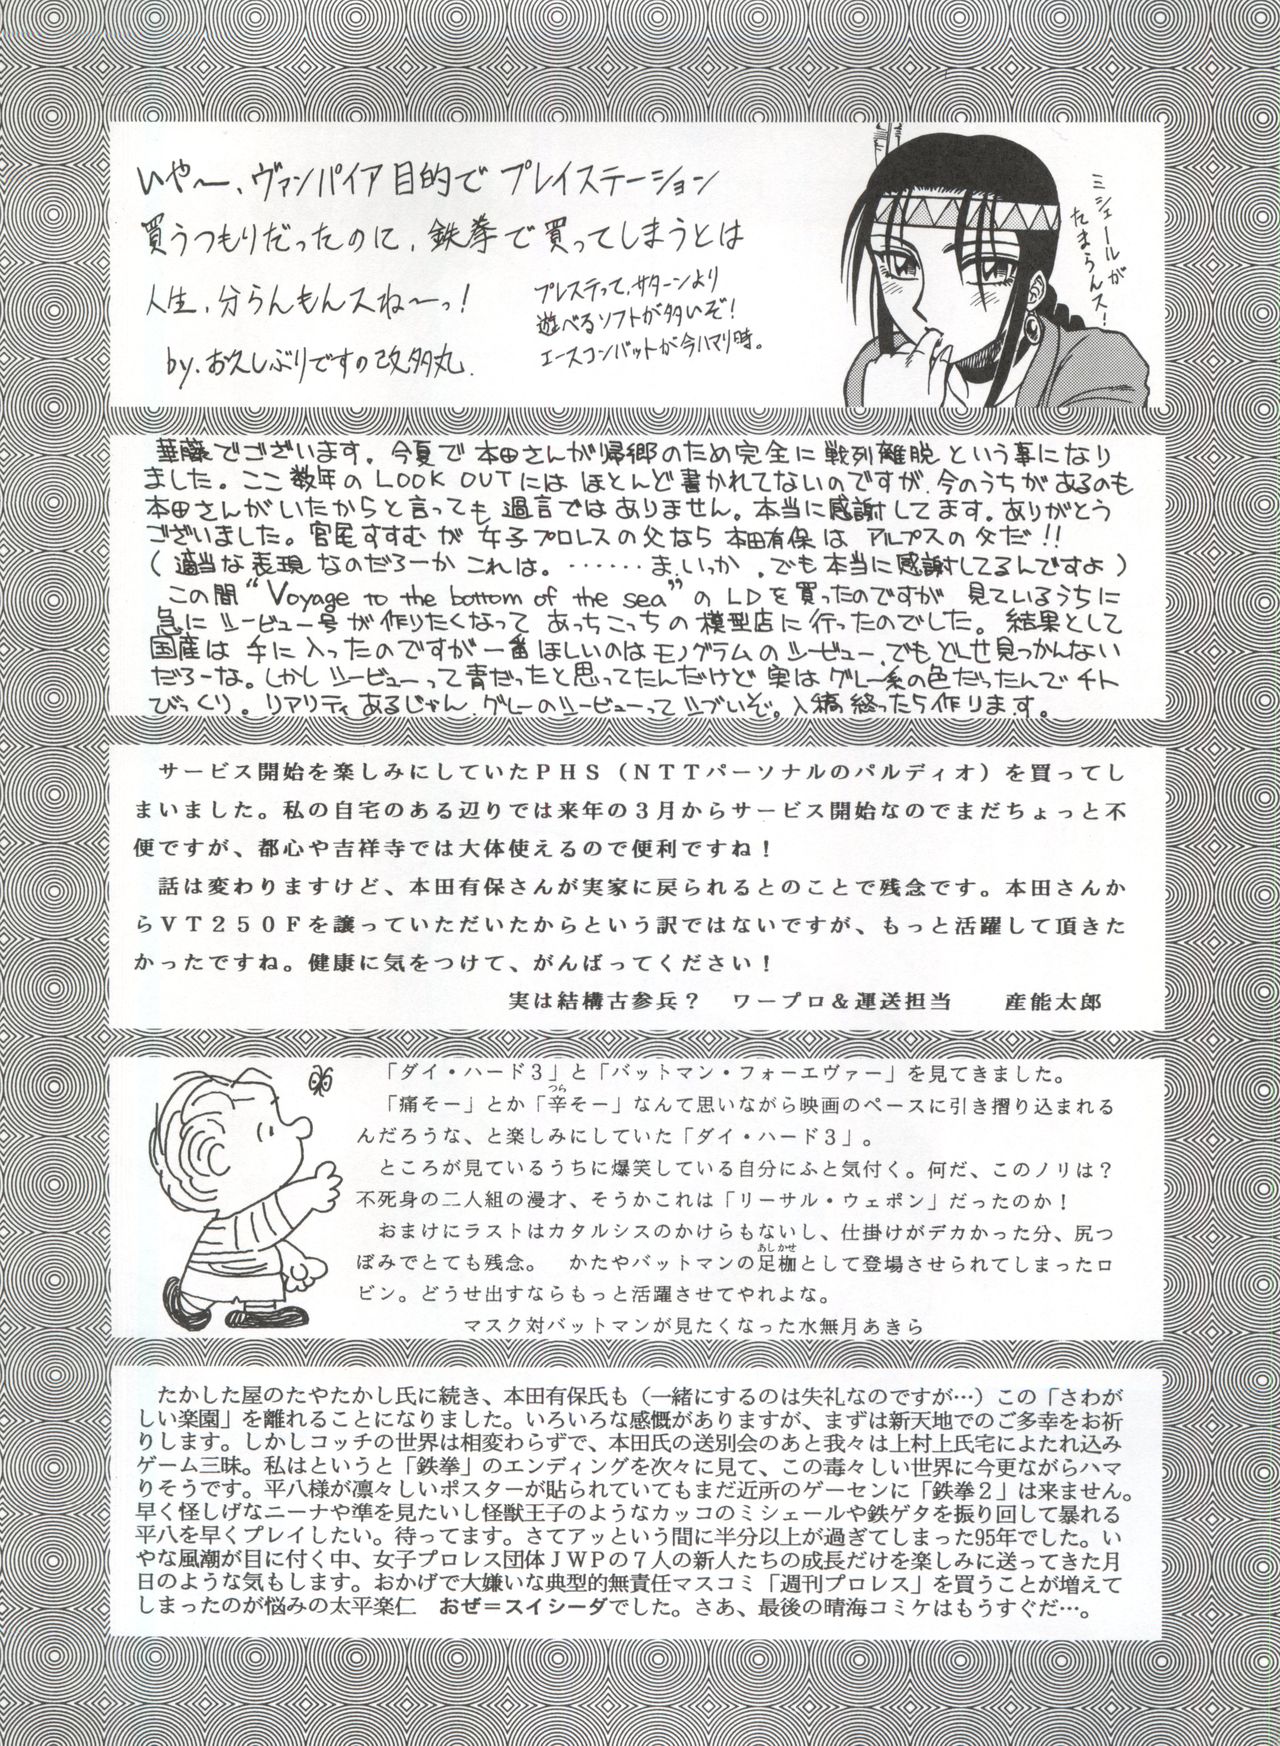 いや〜、ヴァンパイア目的でプレイステーション
買うつもりだったのに、鉄拳で買ってしまうとは
人生、分らんもんスね〜っ!
by.お久しぶりですの改多丸.
プレステって、サターンより
遊べるソフトが多いぞ!
エースコンバットが今ハマり時。
ミシェールが
たまらんス!
華藤でございます。今夏で本田さんが帰郷のため完全に戦列離脱という事になり
ました。ここ数年のLOOK OUTにはほとんど書かれてないのですが、今のうちがあるのも
本田さんがいたからと言っても過言ではありません。本当に感謝してます。ありがとう
ございました。宮尾すすむが女子プロレスの父なら本田有保はアルプスの父だ!!
(適当な表現なのだろーかこれは。‥‥‥ま、いっか、でも本当に感謝してるんですよ)
この間“Voyage to the bottom of the sea”のLDを買ったのですが見ているうちに
急にシービュー号が作りたくなってあっちこっちの模型店に行ったのでした。結果として
国産は手に入ったのですが一番ほしいのはモノグラムのシービュー、でもどーせ見つかんない
だろーな。しかしシービューって青だったと思ってたんだけど実はグレー系の色だったんでチト
びっくり。リアリティあるじゃん、グレーのシービューってシブいぞ。入稿終ったら作ります。
サービス開始を楽しみにしていたPHS(NTTパーソナルのパルディオ)を買ってし
まいました。私の自宅のある辺りでは来年の3月からサービス開始なのでまだちょっと不
便ですが、都心や吉祥寺では大体使えるので便利ですね!
話は変わりますけど、本田有保さんが実家に戻られるとのことで残念です。本田さんか
らVT250Fを譲っていただいたからという訳ではないですが、もっと活躍して頂きた
かったですね。健康に気をつけて、がんばってください!
実は結構古参兵? ワープロ&運送担当 産能太郎
「ダイ・ハード3」と「バットマン・フォーエヴァー」を見てきました。
「痛そー」とか「辛そー」なんて思いながら映画のペースに引き摺り込まれる
つら
んだろうな、と楽しみにしていた「ダイ・ハード3」。
ところが見ているうちに爆笑している自分にふと気付く。何だ、このノリは?
不死身の二人組の漫才、そうかこれは「リーサル・ウェポン」だったのか!
おまけにラストはカタルシスのかけらもないし、仕掛けがデカかった分、尻つ
ぼみでとても残念。 かたやバットマンの足枷として登場させられてしまったロ
あしかせ
ビン。どうせ出すならもっと活躍させてやれよな。
マスク対バットマンが見たくなった水無月あきら
たかした屋のたやたかし氏に続き、本田有保氏も(一緒にするのは失礼なのですが…)この「さわが
しい楽園」を離れることになりました。いろいろな感慨がありますが、まずは新天地でのご多幸をお祈
りします。しかしコッチの世界は相変わらずで、本田氏の送別会のあと我々は上村上氏宅によたれ込み
ゲーム三昧。私はというと「鉄拳」のエンディングを次々に見て、この毒々しい世界に今更ながらハマ
りそうです。平八様が凛々しいポスターが貼られていてもまだ近所のゲーセンに「鉄拳2」は来ません。
早く怪しげなニーナや準を見たいし怪獣王子のようなカッコのミシェールや鉄ゲタを振り回して暴れる
平八を早くプレイしたい。待ってます。さてアッという間に半分以上が過ぎてしまった95年でした。い
やな風潮が目に付く中、女子プロレス団体JWPの7人の新人たちの成長だけを楽しみに送ってきた月
日のような気もします。おかげで大嫌いな典型的無責任マスコミ「週刊プロレス」を買うことが増えて
しまったのが悩みの太平楽仁 おぜ=スイシーダでした。さあ、最後の晴海コミケはもうすぐだ…。